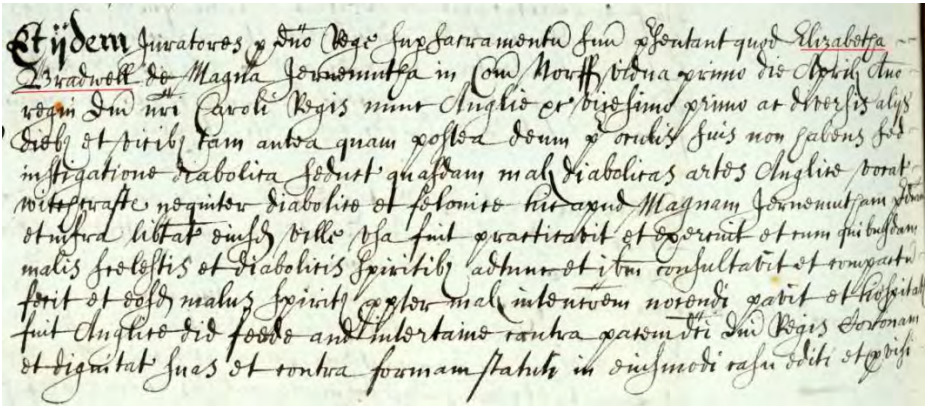 Et ijdem Juratores p dno Rege sup sacramentu suu psentant quod Elizabetha
Bradwell de Magna Jernemutha in Com Norff vidua primo die Aprilis Ano
regni dni nri Caroli Regis nunc Anglie &c vicesimo primo ac diversis alijs
diebz et vicibz tam antea quam postea deum p oculis suis non habens sed
instigatione diabolica seduct quasdam mal diabolicas artes Anglice vocat
witchcrafte nequiter diabolice et felonice hic apud Magnam Jernemutham pd
et infra libtat eiusd ville usa fuit practicavit et exercuit et cum quibusdam
malis scelestis et diabolicis spiritibz adtunc et ibm consultavit et compactu
fecit et eosd malos spirit ppter mal intencoem nocendi pavit et hospitat
fuit Anglice did feede and intertaine contra pacem dci dni Regis Coronam
et dignitat suas et contra formam statuti in eiusmodi casu editi et pvisi